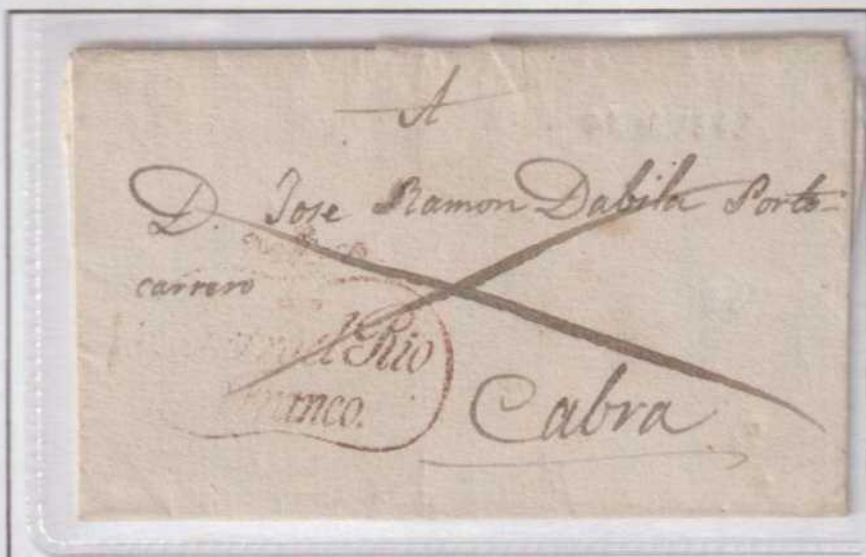 A
D. Jose Ramon Dabila Porto=
carrero
Rio
Cabra